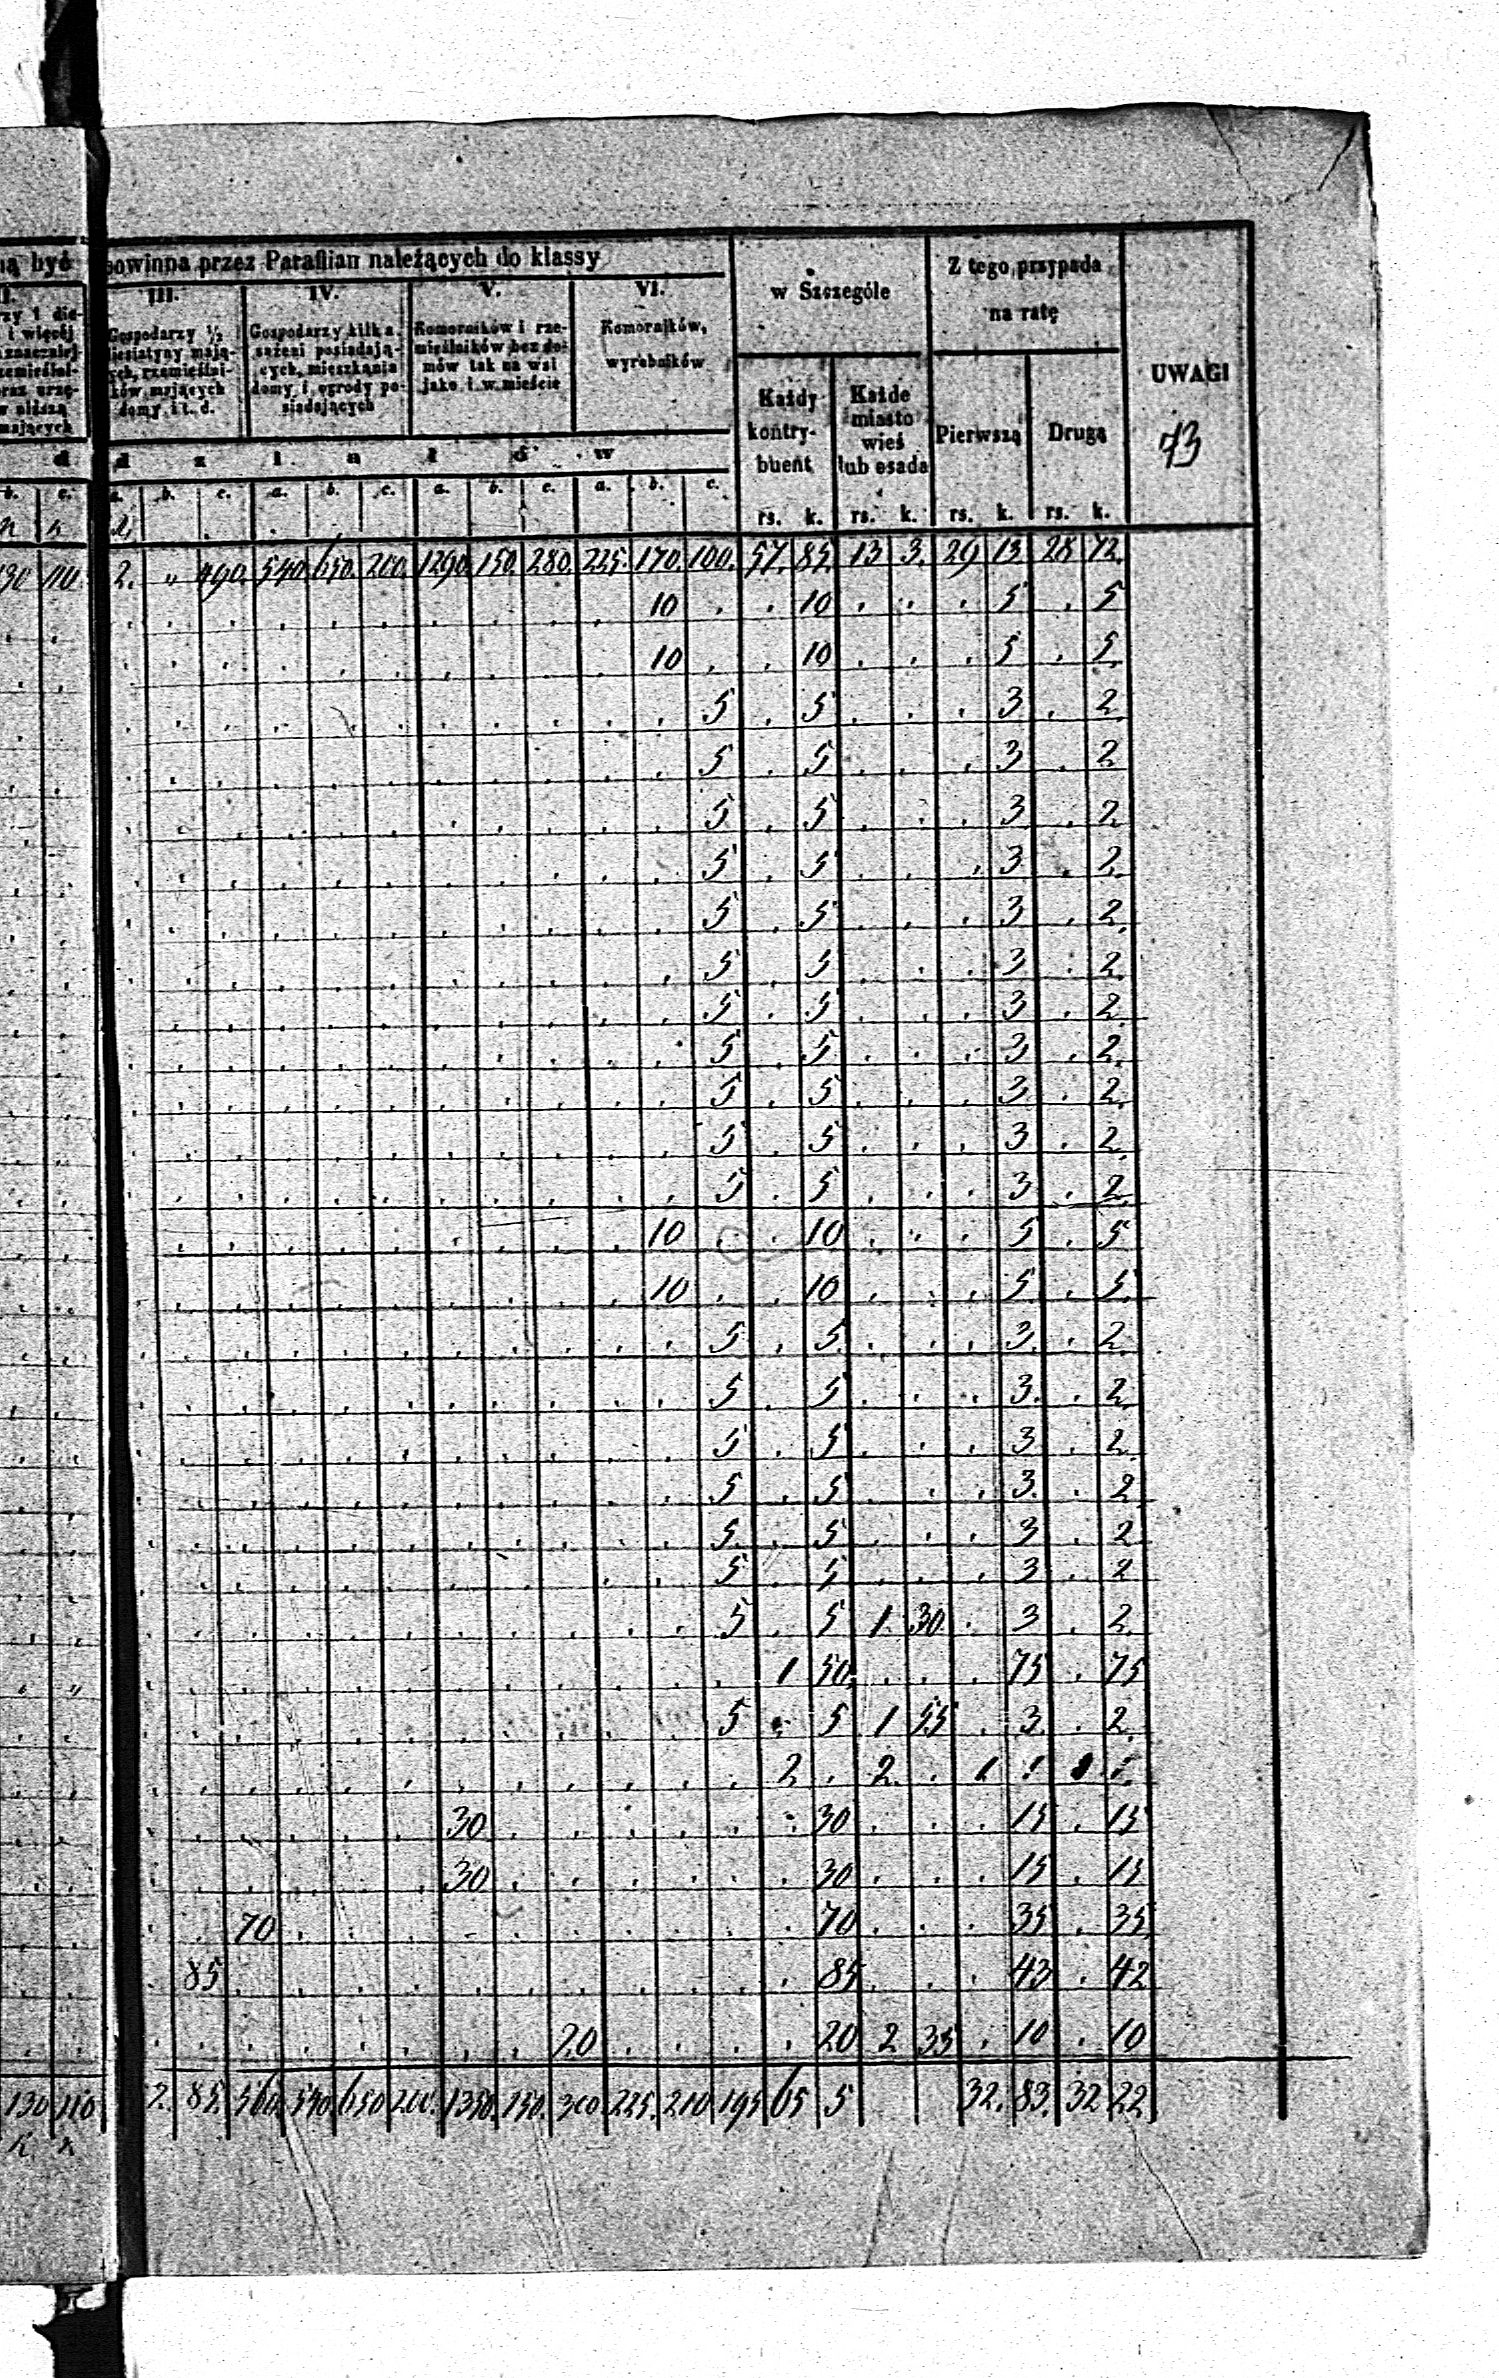 ną być powinna przez Paraflian należących do klassy
w Szczególe
Z tego przypada
na ratę
UWAGI
73
III.
Gospodarzy ½
diesiatyny mają-
cych, rzemieślni-
ków mających
domy, i t. d.
IV.
Gospodarzy kilka
sążeni posiadają-
cych, mieszkania
domy i ogrody po-
siadających
V.
Komorników i rze-
mieślników bez do-
mów tak na wsi
jako i w mieście
VI.
Komorników,
wyrobników
Każdy
kontry-
buent
Każde
miasto
wieś
lub osada
Pierwszą
Drugą
d z i a ł ó w
b. c. a. b. c. a. b. c. a. b. c. a. b. c. rs. k. rs. k. rs. k. rs. k.
130 110 2. " 490. 540 650. 200. 1290. 150. 280. 225. 170. 100. 57. 85. 13 3. 29 13. 28 72.
10 . . 10 . . . 5 . 5
10 . . 10 . . . 5 . 5
5 . 5 . . . 3 . 2
5 . 5 . . . 3 . 2
5 . 5 . . . 3 . 2
5 . 5 . . . 3 . 2
5 . 5 . . . 3 . 2
5 . 5 . . . 3 . 2
5 . 5 . . . 3 . 2
5 . 5 . . . 3 . 2
5 . 5 . . . 3 . 2
5 . 5 . . . 3 . 2
5 . 5 . . . 3 . 2
10 . . 10 . . . 5 . 5
10 . . 10 . . . 5 . 5
5 . 5 . . . 3 . 2
5 . 5 . . . 3 . 2
5 . 5 . . . 3 . 2
5 . 5 . . . 3 . 2
5 . 5 . . . 3 . 2
5 . 5 . . . 3 . 2
5 . 5 1 30 . 3 . 2
1 50 . . . 75 . 75
5 . 5 1 55 . 3 . 2
2 . 2 . 1 . 1 .
30 . . . . . . 30 . . . 15 . 15
30 . . . . . . 30 . . . 15 . 15
70 . . . . . . . . . . 70 . . . 35 . 35
85 . . . . . . . . . . . 85 . . . 43 . 42
20 . . . . 20 2 35 . 10 . 10
130 110 2. 85. 560. 540. 650 200. 1350. 150. 300. 225. 210 195 65 5 32. 83. 32 22